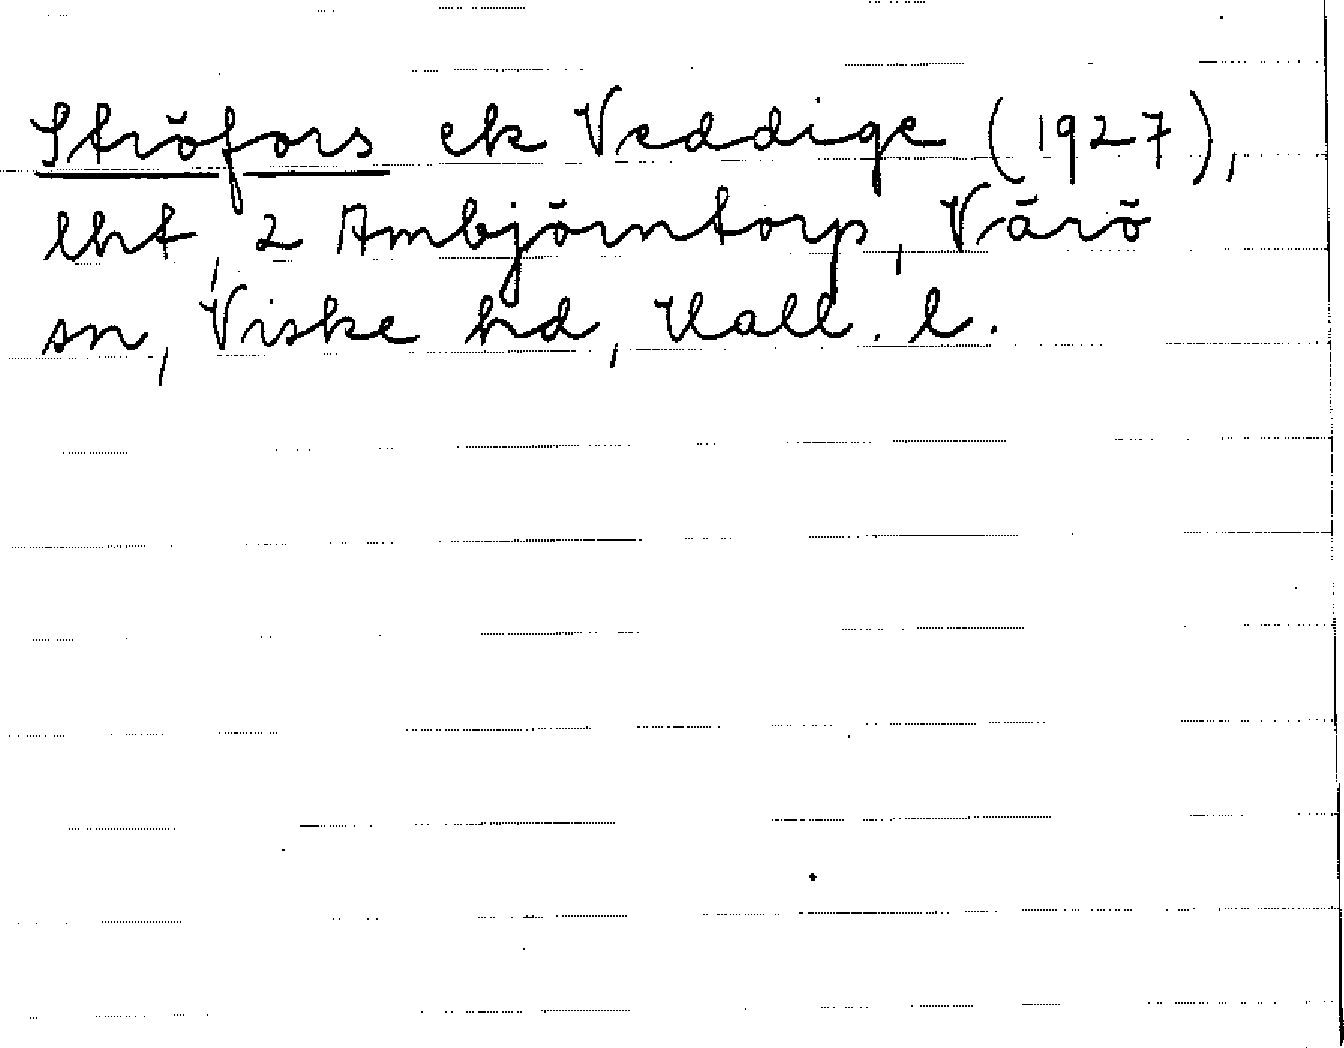 Ströfors ek Veddige (1927),
lht, 2 Ambjörntorp, Värö
sn, Viske hd, Hall. l.